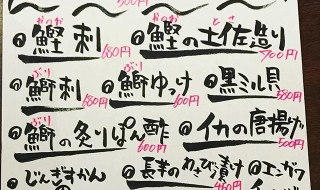 500円
かつお かつお とさ
鰹刺 680円 鰹の土佐造り 700円
ぶり ぶり
鰤刺 680円 鰤ゆっけ 600円 黒ミル貝 580円
ぶり
鰤の炙りぽん酢 600円 イカの唐揚げ 500円
じんぎすかん 長芋のわさび漬け 450円 エンガワ